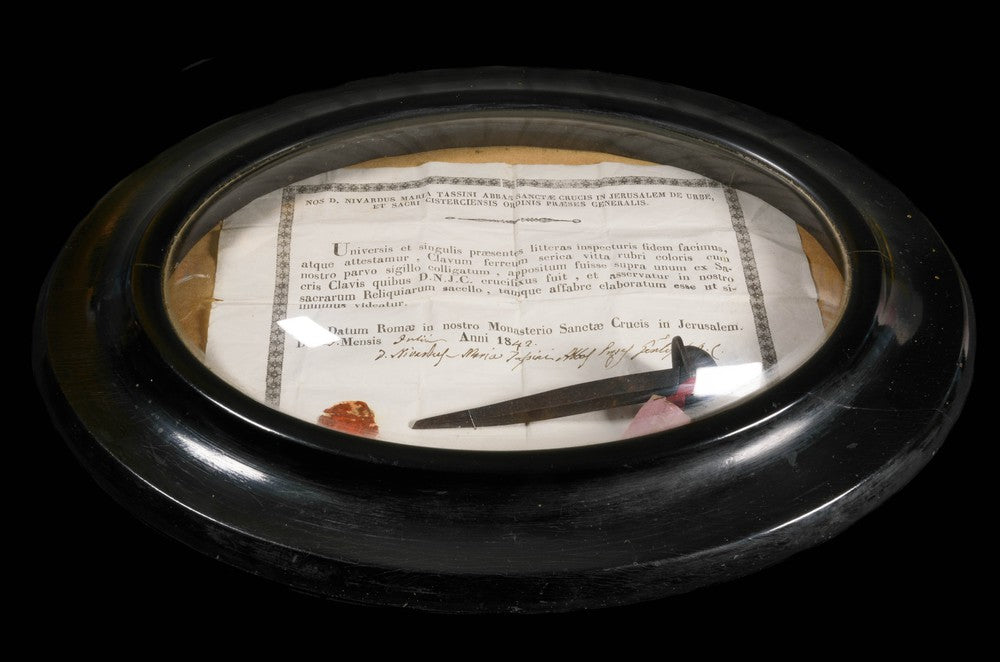 NOS D. NIVARDUS MARIA TASSINI ABBAS SANCTÆ CRUCIS IN JERUSALEM DE URBE,
ET SACRI CISTERCIENSIS ORDINIS PRÆSES GENERALIS.
Universis et singulis præsentes litteras inspecturis fidem facimus,
atque attestamur, Clavum ferreum serica vitta rubri coloris cum
nostro parvo sigillo colligatum, appositum fuisse supra unum ex Sa-
cris Clavis quibus D.N.J.C. crucifixus fuit, et asservatur in nostro
sacrarum Reliquiarum sacello, tamque affabre elaboratum esse ut si-
millimus videatur.
Datum Romæ in nostro Monasterio Sanctæ Crucis in Jerusalem.
Mensis Anni 1842.
Maria Tassini